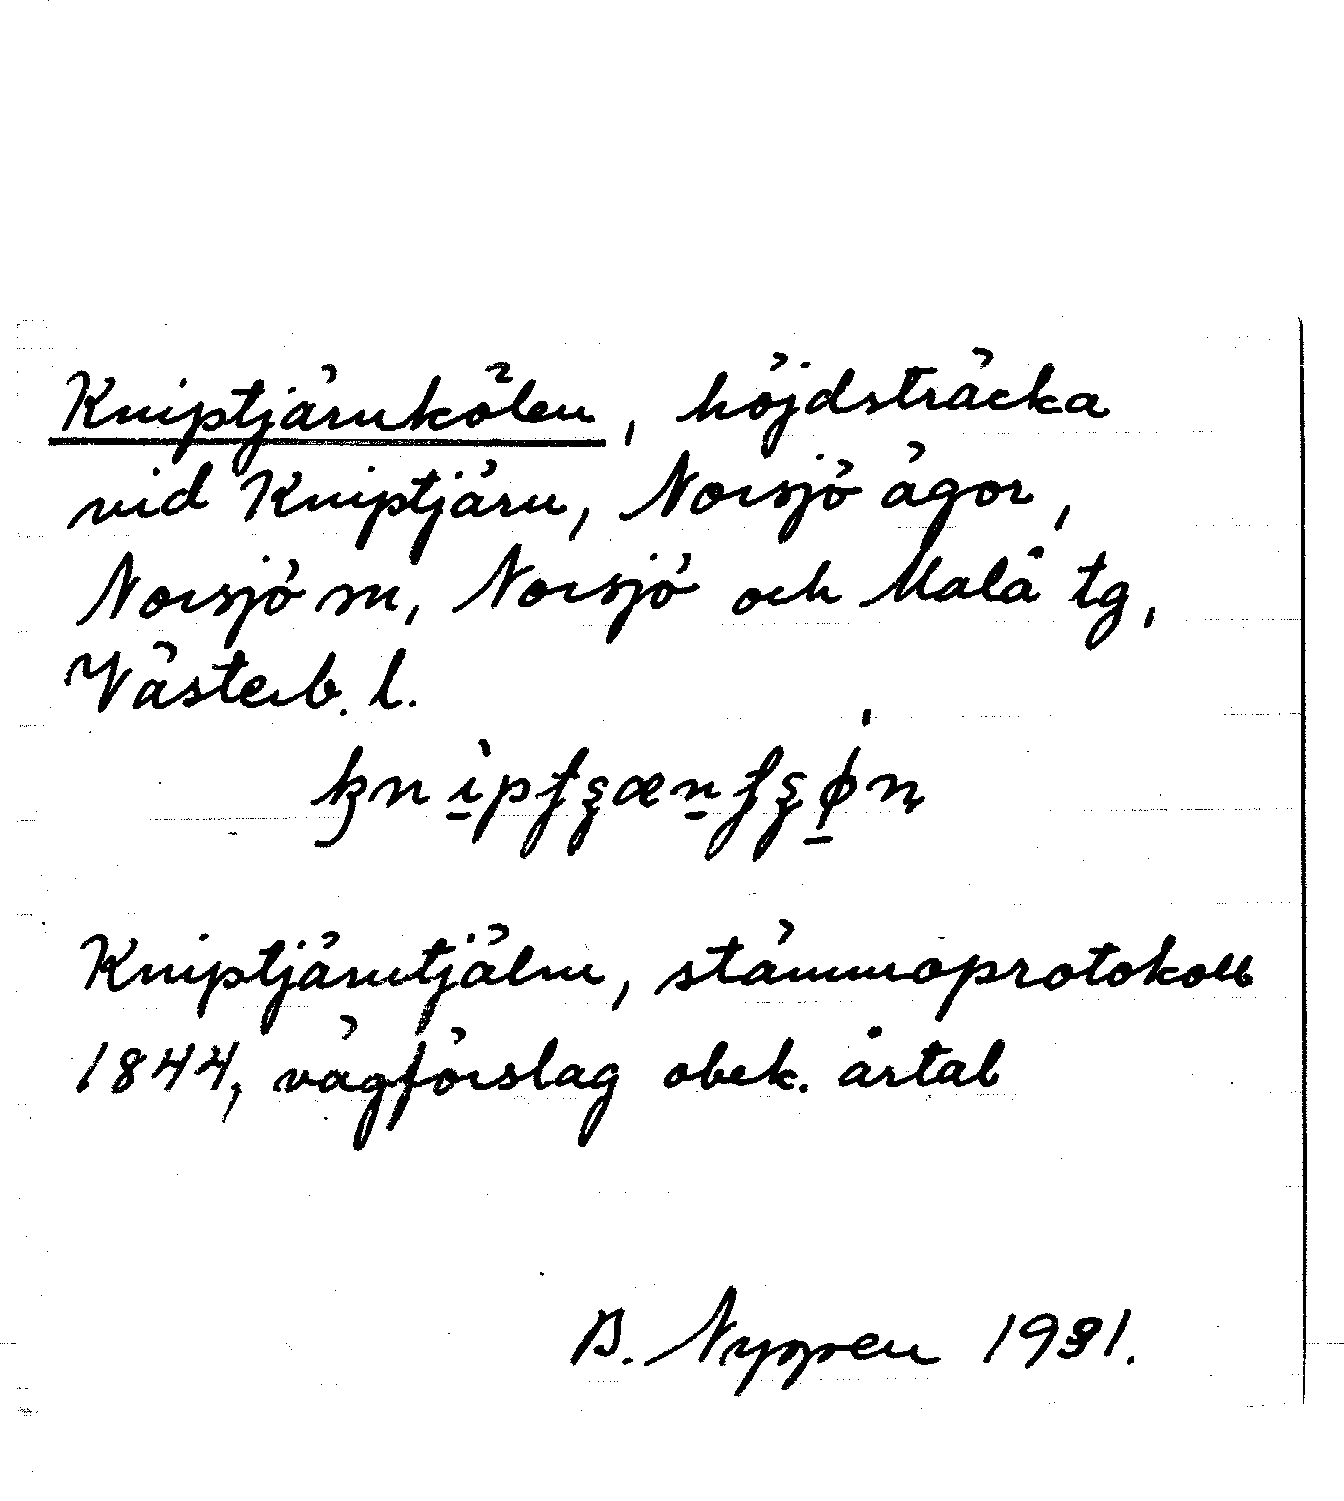 Kniptjärnkölen, höjdsträcka
vid Kniptjärn, Norsjö ägor,
Norsjö sn, Norsjö och Malå tg,
Västerb. l.
Kniptjärntjäln, stämmoprotokoll
1844, vägförslag obek. årtal
B. Nygren 1931.